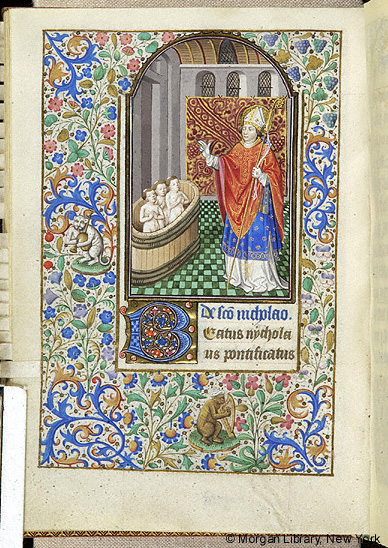 De sco nicholao.
Beatus nychola
us pontificatus
© Morgan Library, New York